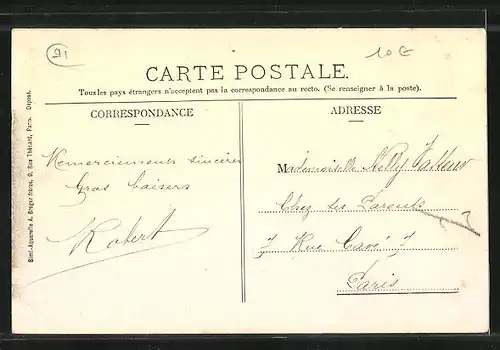 91
10 €
CARTE POSTALE.
Tous les pays étrangers n'acceptent pas la correspondance au recto. (Se renseigner à la poste).
CORRESPONDANCE
Remerciements sincères
Gros baisers
Robert
ADRESSE
Mademoiselle Nelly
Chez ses Parents
7 Rue Cavé 7
Paris
Simili-Aquarelle A. Breger frères, 9, Rue Thénard, Paris. Déposé.